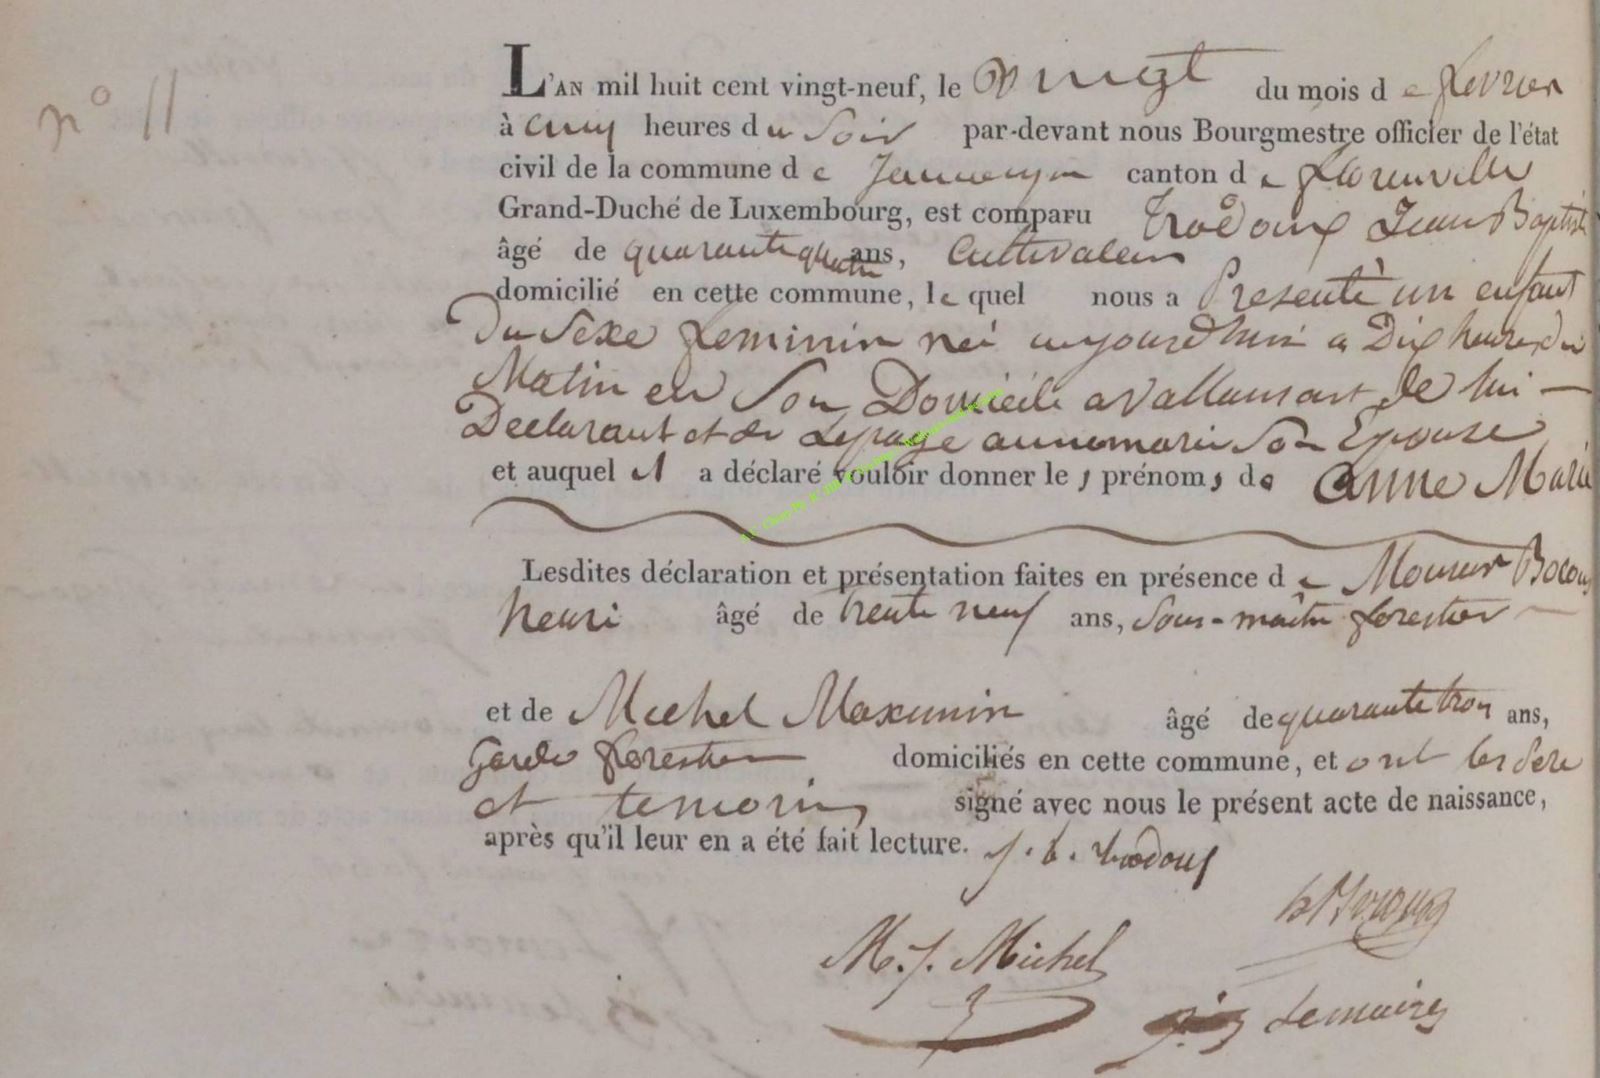 n° 11
L'AN mil huit cent vingt-neuf, le vingt du mois de fevrier
à cinq heures du Soir par-devant nous Bourgmestre officier de l'état
civil de la commune de canton de florenville
Grand-Duché de Luxembourg, est comparu Jean Baptiste
âgé de quarante quatre ans, Cultivateur
domicilié en cette commune, lequel nous a Presenté un enfant
Du Sexe feminin né aujourd'hui a Dix heures du
Matin en Son Domicile a de lui
Declarant et de Lepage annemarie Son Epouse
et auquel il a déclaré vouloir donner les prénoms de Anne Marie
Lesdites déclaration et présentation faites en présence de
henri âgé de trente neuf ans, Sous-maître forestier
et de Michel Maximin âgé de quarante trois ans,
Garde forestier domiciliés en cette commune, et ont les Pere
et temoins signé avec nous le présent acte de naissance,
après qu'il leur en a été fait lecture. j. b.
M. j. Michel
Lemaire